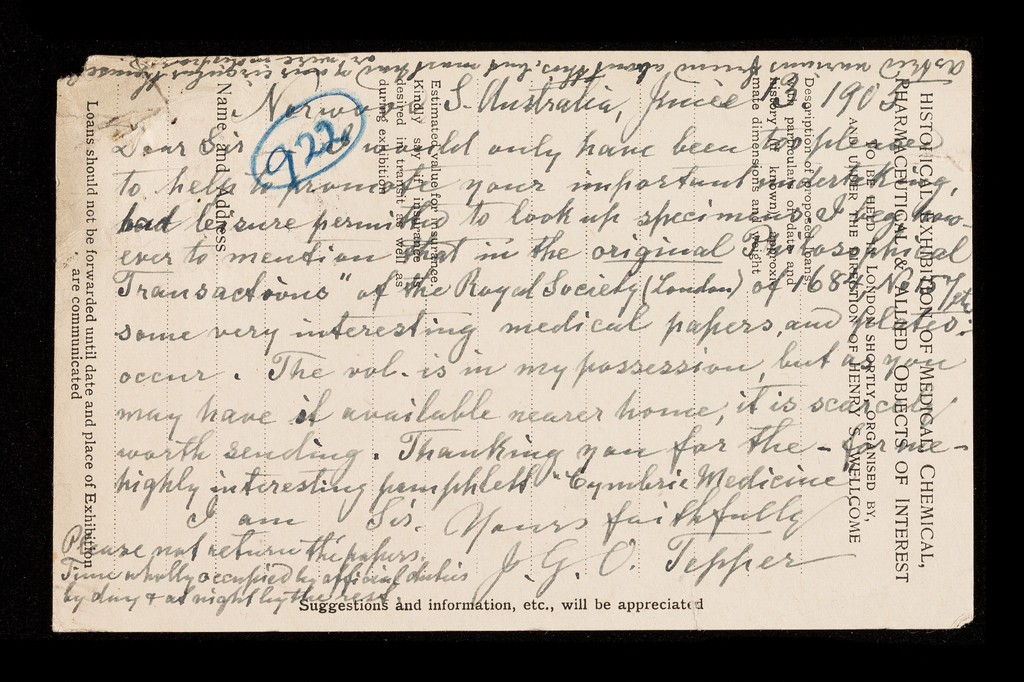 Norwood, S. Australia, June 13 1903
922
Dear Sir would only have been too pleased
to help to promote your important undertaking,
had leisure permitted to look up specimens. I beg how-
ever to mention that in the original "Philosophical
Transactions" of the Royal Society (London) of 168
some very interesting medical papers, and plates
occur. The vol. is in my possession, but as you
may have it available nearer home, it is scarcely
worth sending. Thanking you for the - for me -
highly interesting pamphlett "Cymbric Medicine
I am Sir. Yours faithfully
J. G. O. Tepper
Please not return the papers.
Time wholly occupied by official duties
by day & at night by the rest.
Suggestions and information, etc., will be appreciated
HISTORICAL EXHIBITION OF MEDICAL, CHEMICAL,
PHARMACEUTICAL & ALLIED OBJECTS OF INTEREST
TO BE HELD IN LONDON SHORTLY, ORGANISED BY,
AND UNDER THE DIRECTION OF HENRY S. WELLCOME
Description of proposed loans
with particulars of date and
history if known, approxi-
mate dimensions and weight
Estimated value for insurance.
Kindly say if insurance is
desired in transit as well as
during exhibition
Name and Address
Loans should not be forwarded until date and place of Exhibition
are communicated